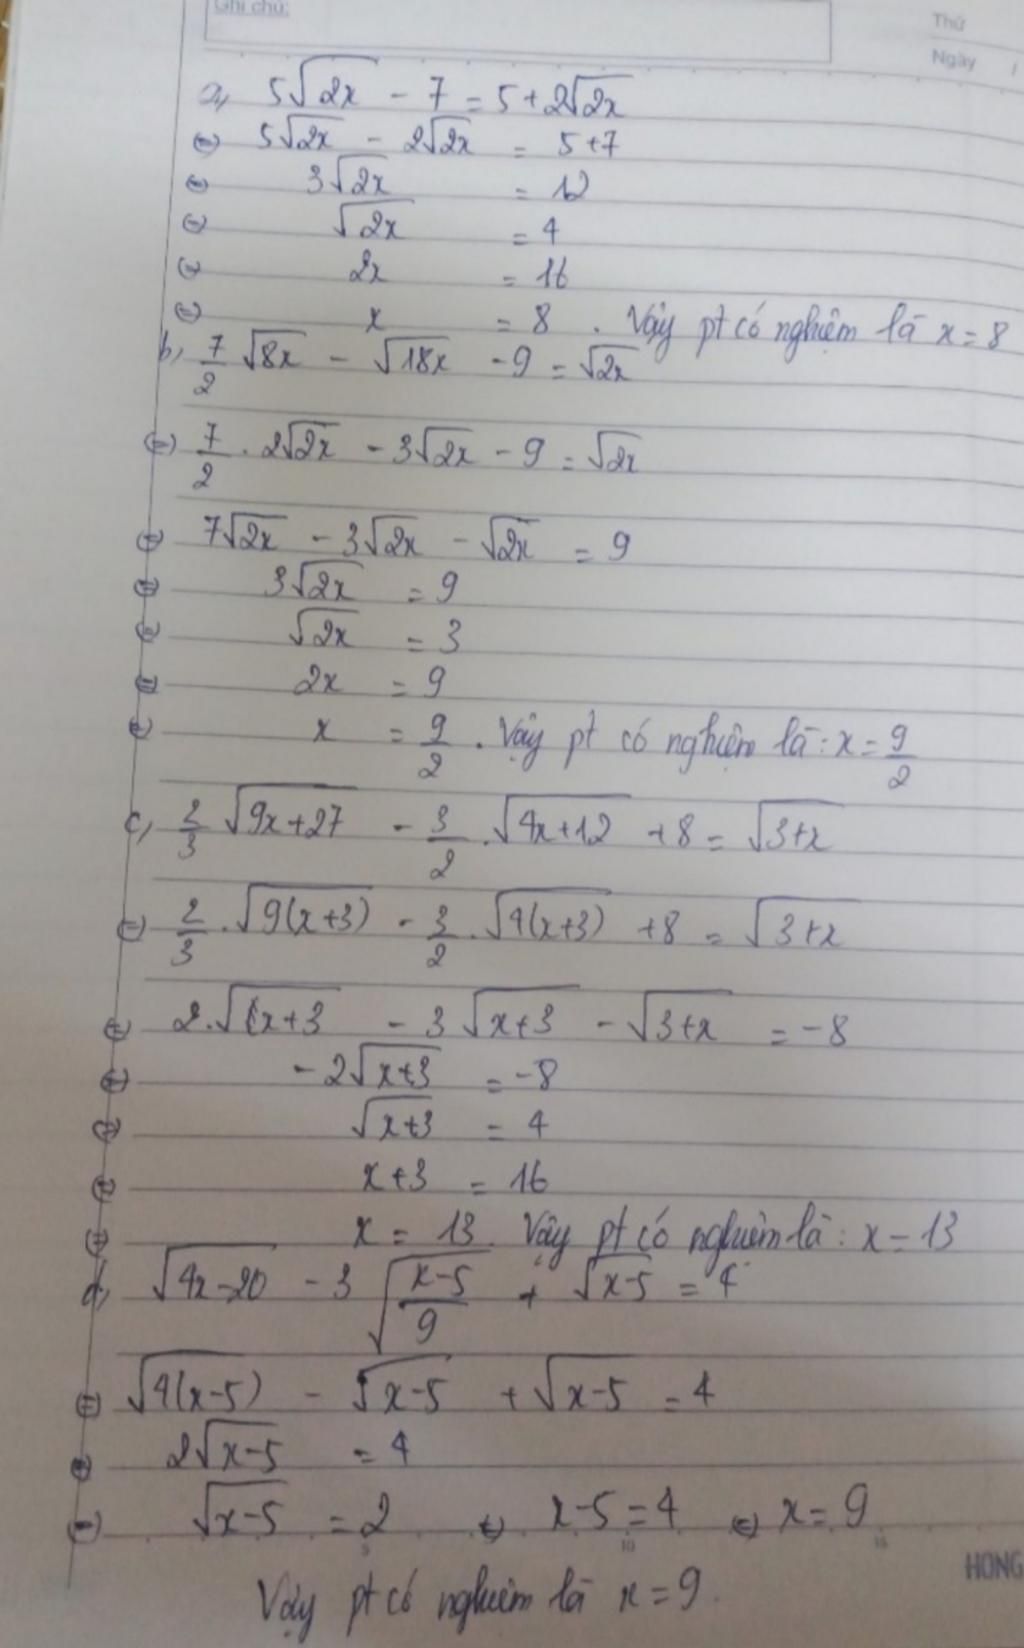 Ghi chú:
Thứ
Ngày /
a, 5√2x - 7 = 5 + 2√2x
⇔ 5√2x - 2√2x = 5+7
⇔ 3√2x = 12
⇔ √2x = 4
⇔ 2x = 16
⇔ x = 8 . Vậy pt có nghiệm là x = 8
b, 7/2 √8x - √18x - 9 = √2x
⇔ 7/2 . 2√2x - 3√2x - 9 = √2x
⇔ 7√2x - 3√2x - √2x = 9
⇔ 3√2x = 9
⇔ √2x = 3
⇔ 2x = 9
⇔ x = 9/2 . Vậy pt có nghiệm là : x = 9/2
c, 2/3 √(9x+27) - 3/2 . √(4x+12) + 8 = √(3+x)
⇔ 2/3 . √(9(x+3)) - 3/2 . √(4(x+3)) + 8 = √(3+x)
⇔ 2.√(x+3) - 3√(x+3) - √(3+x) = -8
⇔ -2√(x+3) = -8
⇔ √(x+3) = 4
⇔ x+3 = 16
⇔ x = 13. Vậy pt có nghiệm là : x = 13
d, √(4x-20) - 3√((x-5)/9) + √(x-5) = 4
⇔ √(4(x-5)) - √(x-5) + √(x-5) = 4
⇔ 2√(x-5) = 4
⇔ √(x-5) = 2 ⇔ x-5 = 4 ⇔ x = 9
5 10 15
HONG
Vậy pt có nghiệm là x = 9.